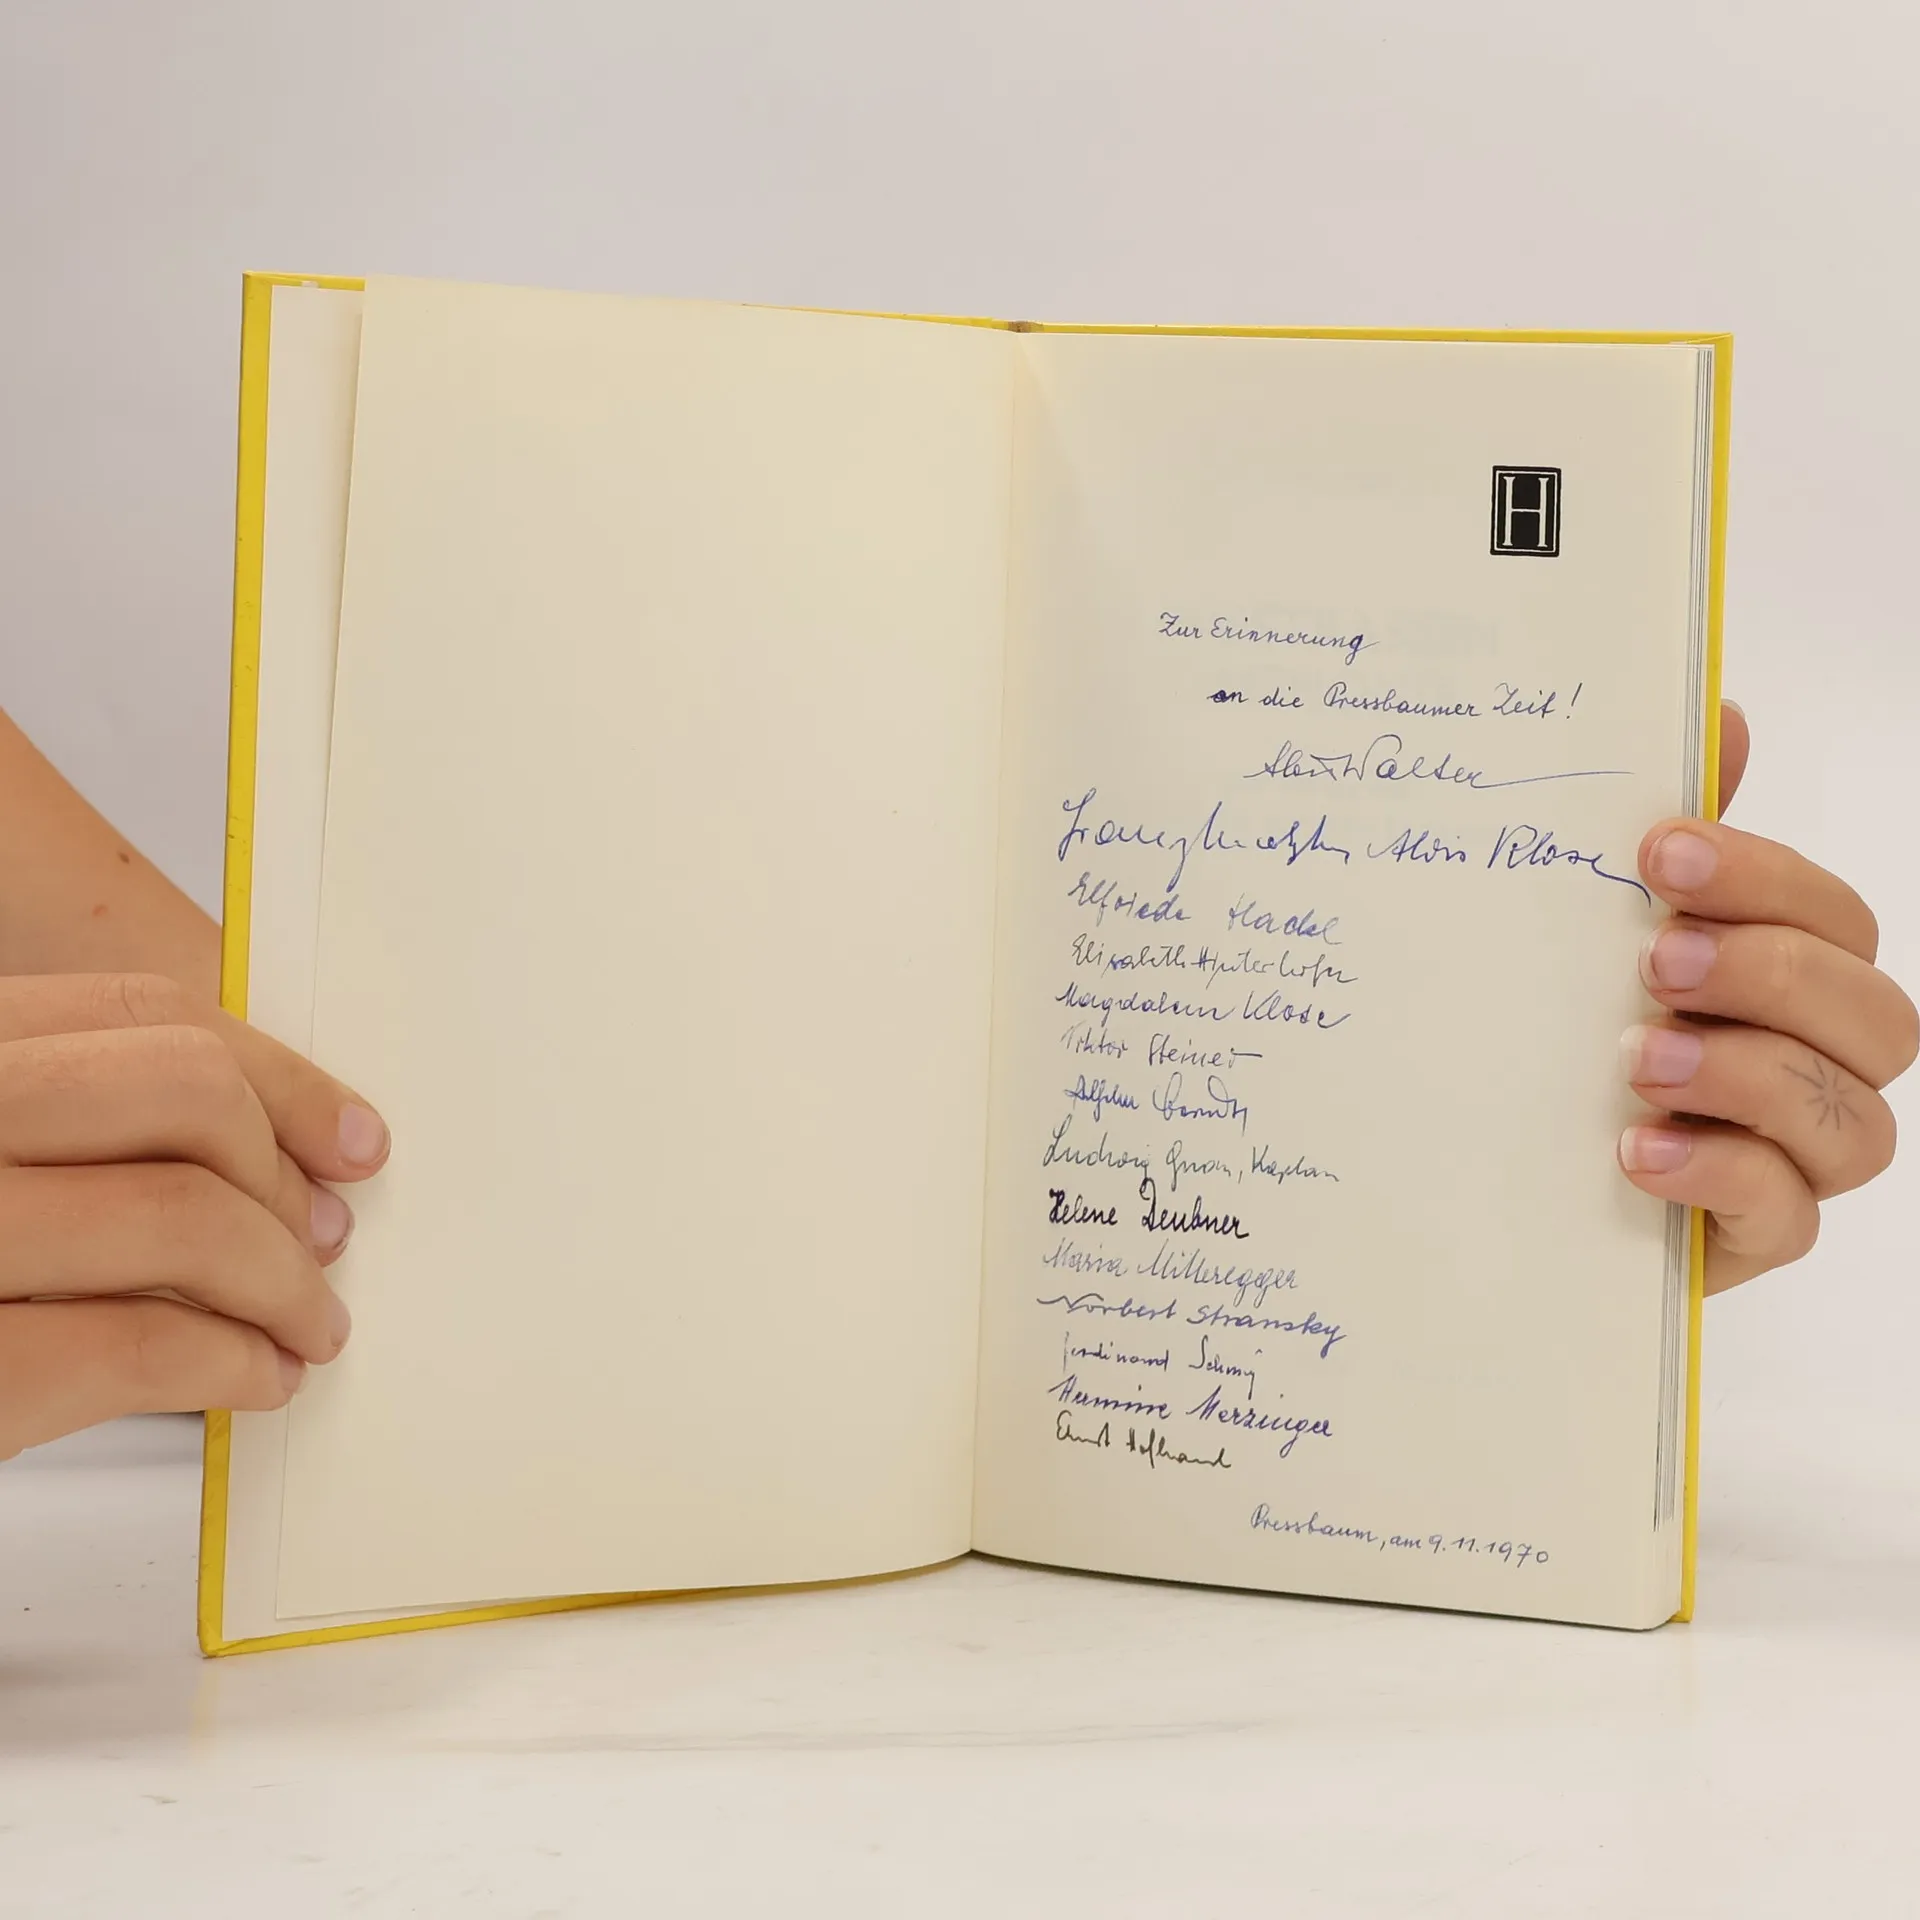 H
Zur Erinnerung
an die Pressbaumer Zeit!
Walter
Franz Alois Klose
Elfriede Hackl
Elisabeth Hinterhofer
Magdalena Klose
Viktor Steiner
Ludwig Kaplan
Helene Deubner
Maria Mitteregger
Norbert Stransky
Ferdinand
Hermine Merzinger
Ernst
Pressbaum, am 9.11.1970